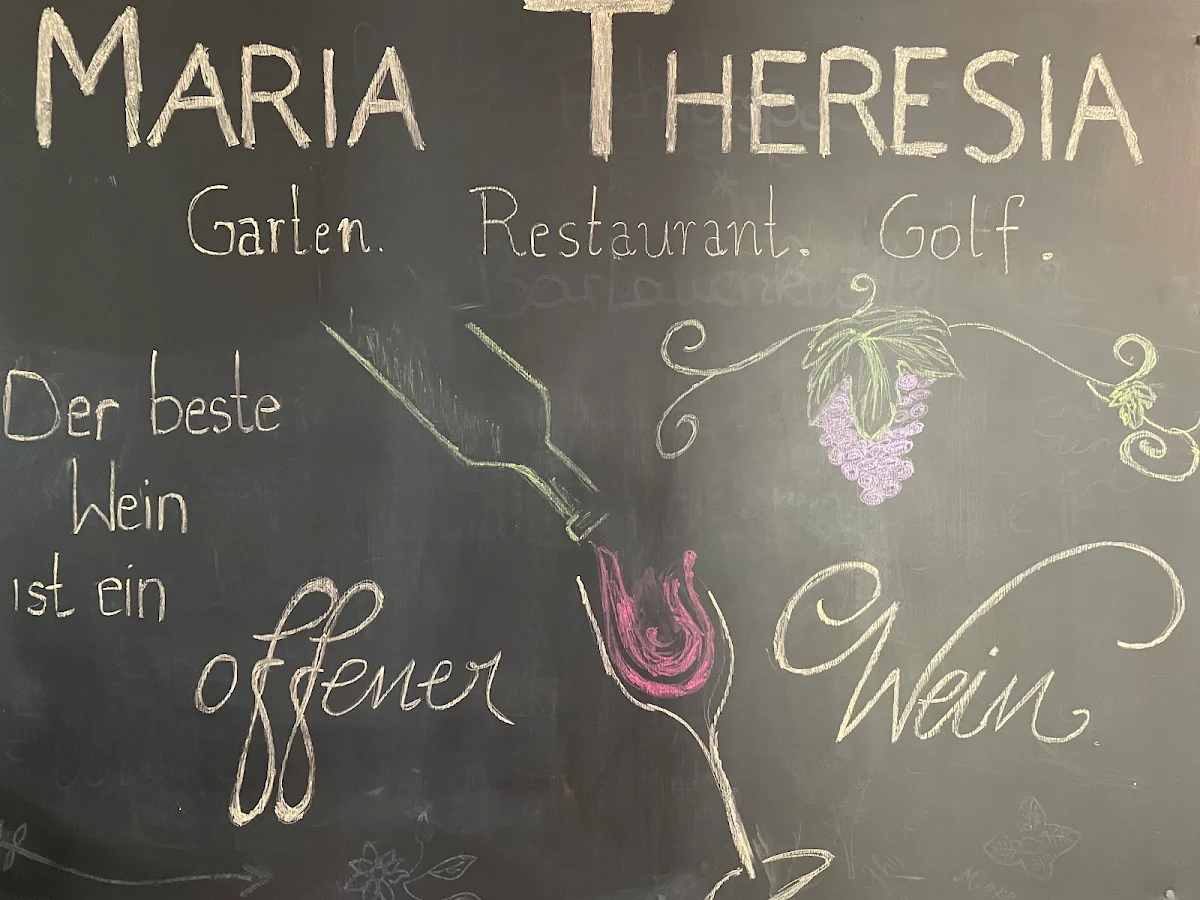 MARIA THERESIA
Garten. Restaurant. Golf.
Der beste
Wein
ist ein
offener Wein